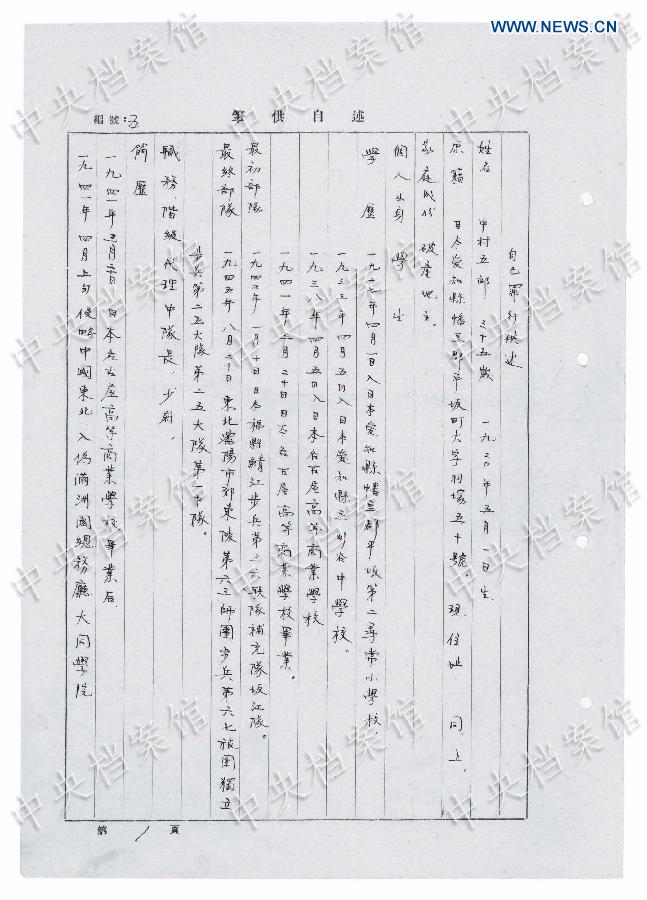 WWW.NEWS.CN
中央档案馆
筆供自述
編號:3
自己罪行供述
姓名 中村五郎 三十五歲 一九二〇年五月一日生
原籍 日本愛知縣幡豆郡平坂町大字羽塚五十號。現住址 同上。
家庭成份 破產地主
個人出身 學生
學歷 一九二七年四月一日入日本愛知縣幡豆郡平坂第二尋常小學校、
一九三三年四月五日入日本愛知縣立刈谷中學校、
一九三八年四月五日入日本名古屋高等商業學校
一九四一年三月二十日日本名古屋高等商業學校畢業。
最初部隊 一九四三年一月十日日本福井縣鯖江步兵第三六聯隊補充隊坂江隊。
最終部隊 一九四五年八月二十日東北瀋陽市郊東陵第六三師團步兵第六七旅團獨立
步兵第二五大隊第二五大隊第一中隊。
職務、階級 代理中隊長、少尉、
簡歷
一九四一年三月 日日本名古屋高等商業學校畢業后
一九四一年四月上旬侵略中國東北入偽滿洲國總務廳大同學院
第 1 頁